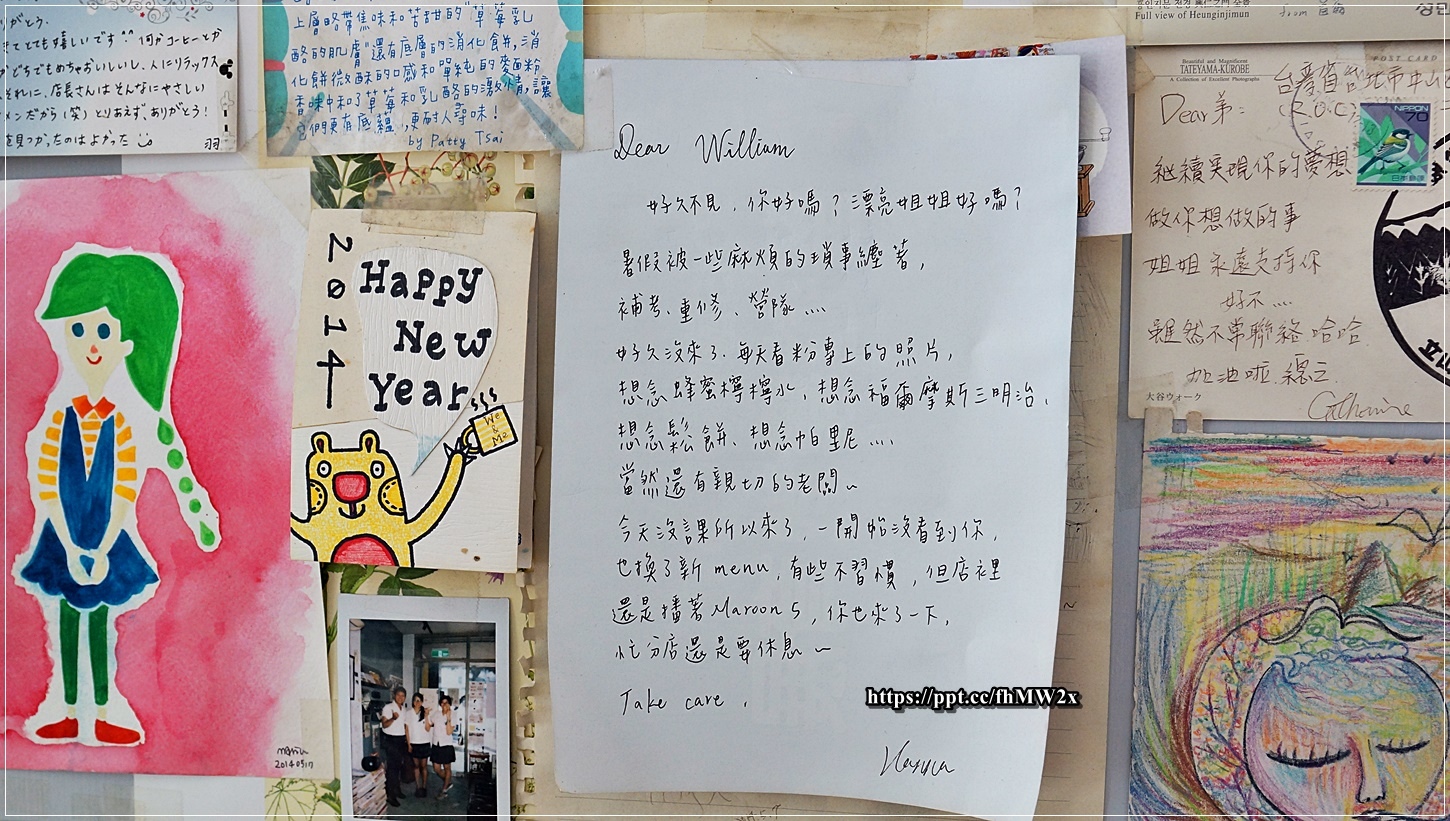 がとう。
きてとても嬉しいです^^ 何かコーヒーとか
どちでもめちゃおいしいし、人にリラックス
それに、店長さんはそんなにやさしい
メンだから(笑)とりあえず、ありがとう!
を見つかったのはよかった
羽
上層略帶焦味和苦甜的"草莓乳
酪的肌膚"還有底層的消化餅,消
化餅微酥的口感和單純的麥麵粉
香味中和了草莓和乳酪的激情,讓
它們更有底蘊,更耐人尋味!
by Patty Tsai
2014
Happy
New
Year
We & Me
2014 05 17
Dear William
好久不見,你好嗎?漂亮姐姐好嗎?
暑假被一些麻煩的瑣事纏著,
補考、重修、營隊....
好久沒來了.每天看粉專上的照片,
想念蜂蜜檸檬水,想念福爾摩斯三明治,
想念鬆餅、想念帕里尼....
當然還有親切的老闆~
今天沒課所以來了,一開始沒看到你,
也換了新menu,有些不習慣,但店裡
還是播著Maroon 5,你也來了一下,
忙分店還是要休息~
Take care,
https://ppt.cc/fhMW2x
Full view of Heunginjimun
from 首爾
Beautiful and Magnificent
TATEYAMA-KUROBE
A Collection of Excellent Photographs
POST CARD
台灣省台北市中山
(R.O.C)
Dear弟:
NIPPON
70
日本郵便
繼續實現你的夢想
做你想做的事
姐姐永遠支持你
好不....
雖然不常聯絡 哈哈
加油啦
大谷ウォーク
Catherine
立山